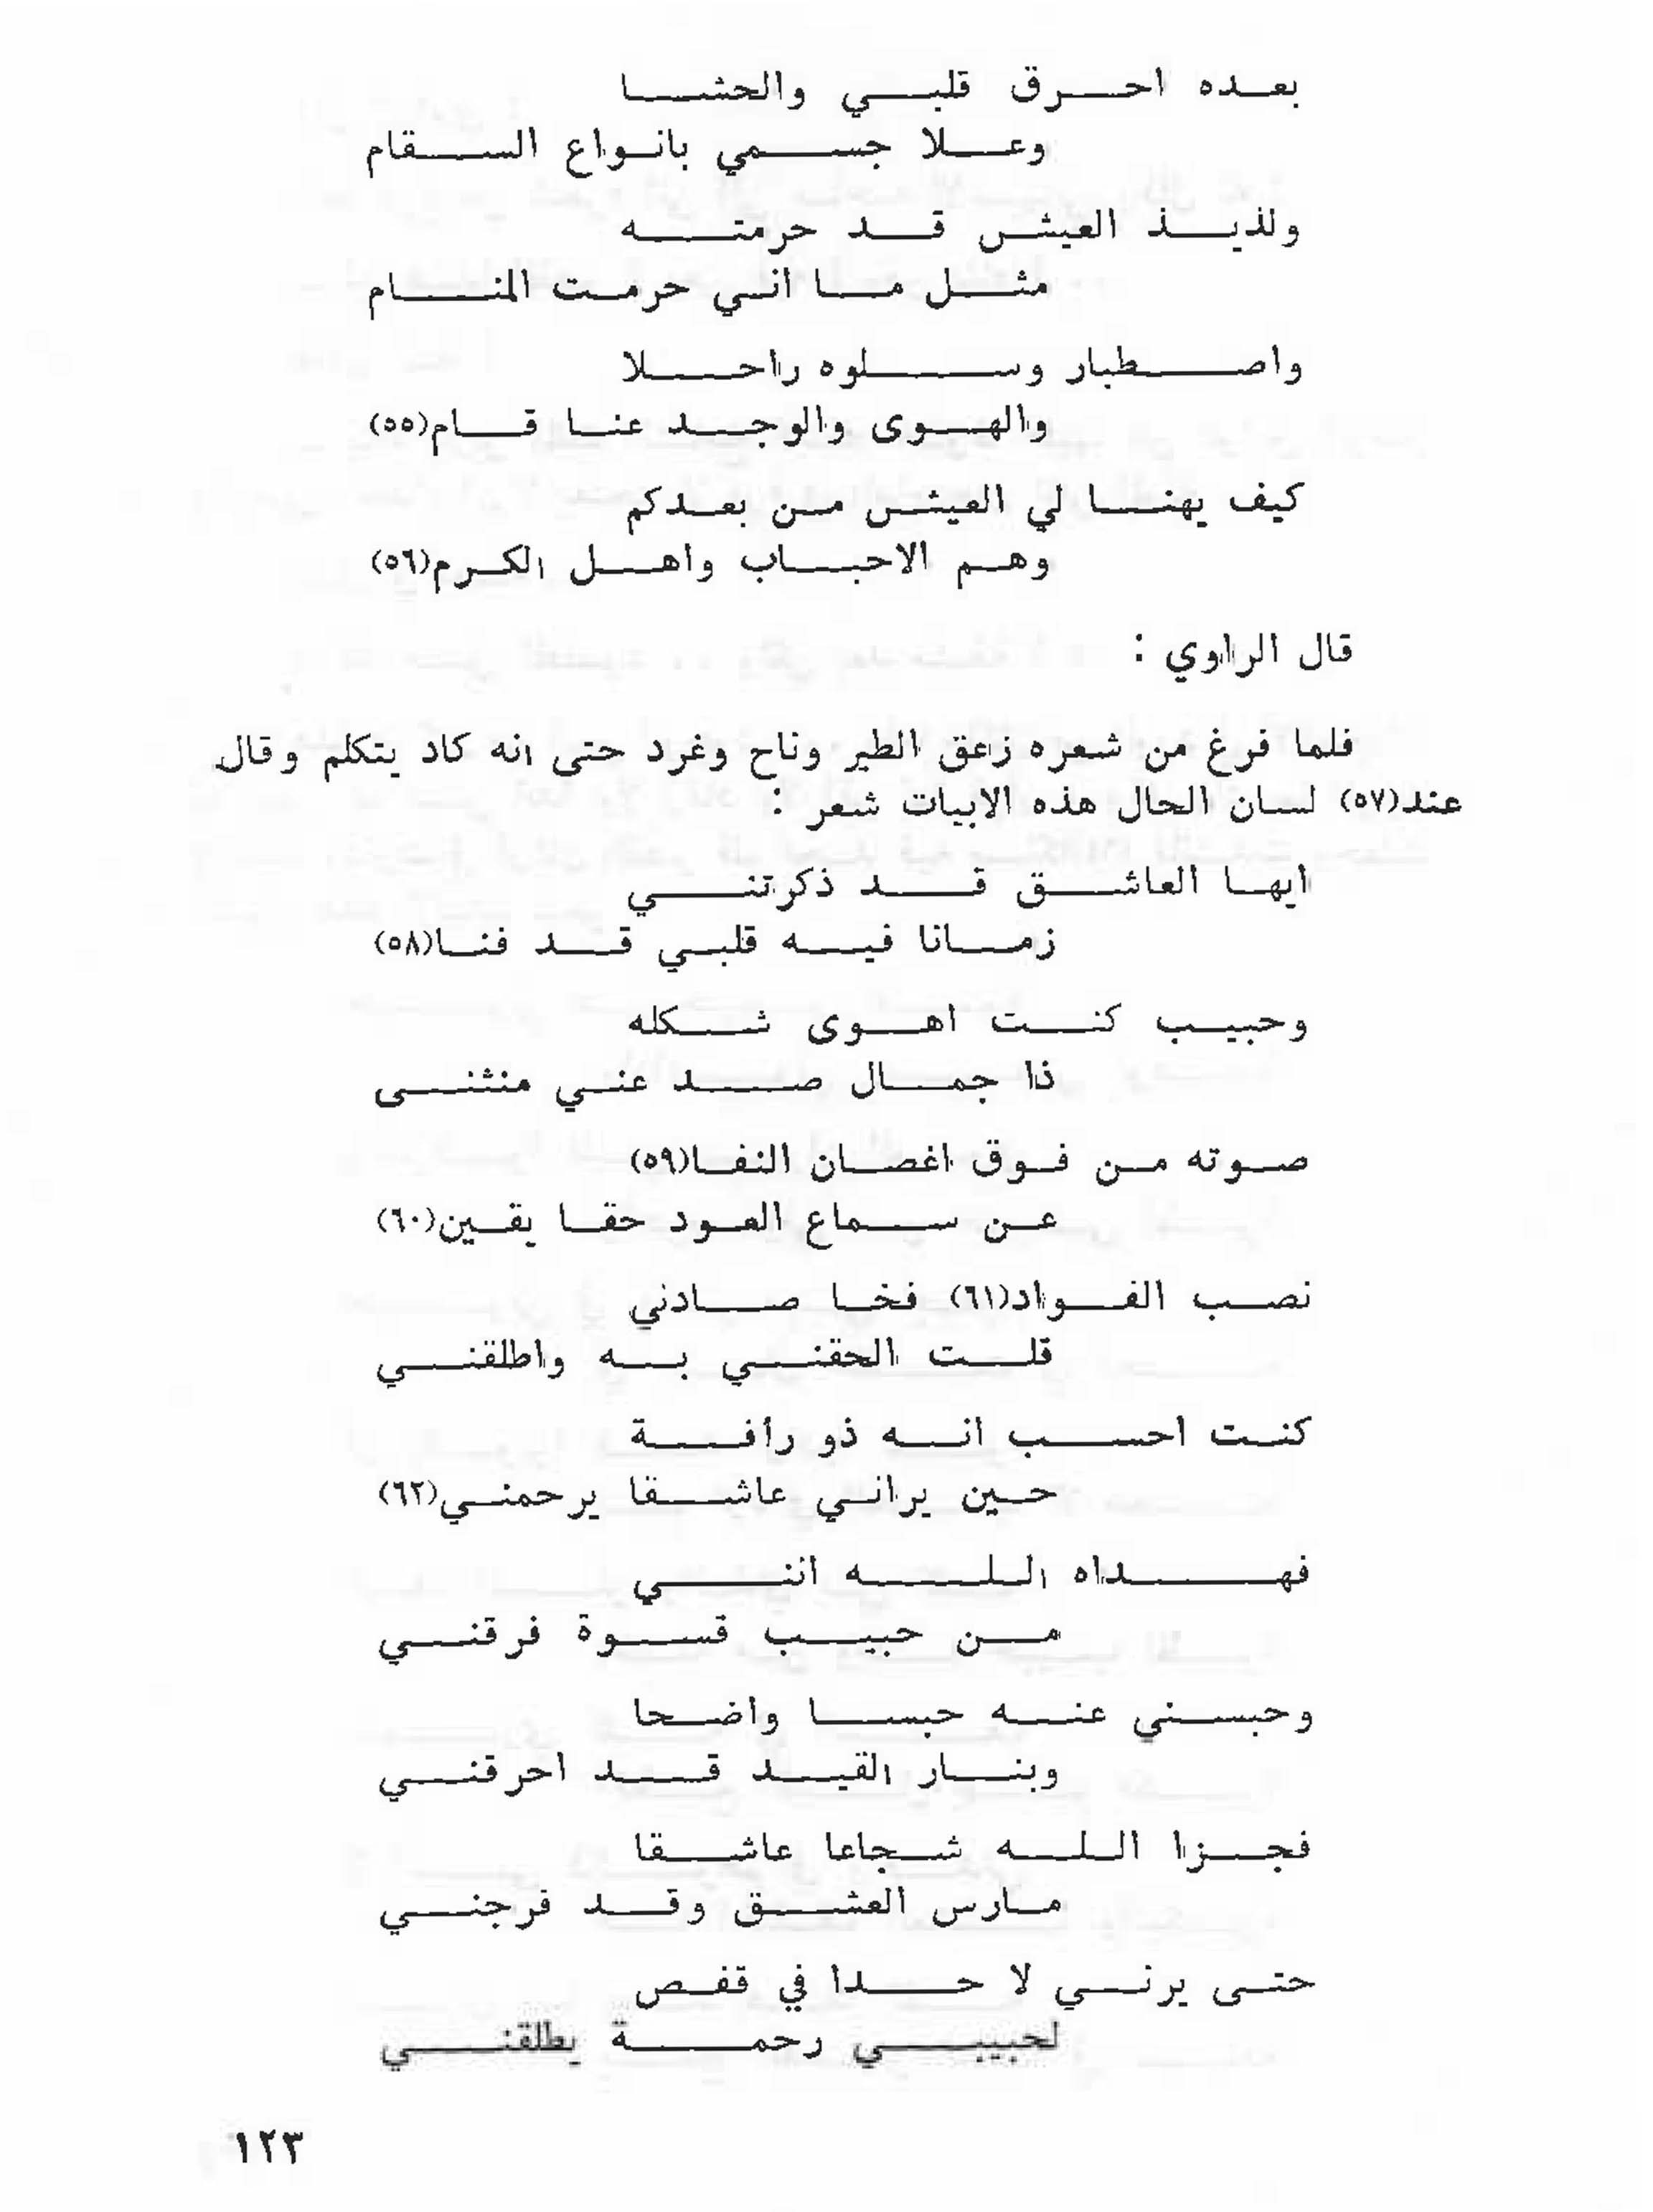 بعده احرق قلبي والحشا
وعلا جسمي بانواع السقام
ولذيذ العيش قد حرمته
مثل ما اني حرمت المنام
واصطبار وسلوه راحلا
والهوى والوجد عنا قام(٥٥)
كيف يهنا لي العيش من بعدكم
وهم الاحباب واهل الكرم(٥٦)
قال الراوي :
فلما فرغ من شعره زعق الطير وناح وغرد حتى انه كاد يتكلم وقال
عند(٥٧) لسان الحال هذه الابيات شعر :
ايها العاشق قد ذكرتني
زمانا فيه قلبي قد فنا(٥٨)
وحبيب كنت اهوى شكله
ذا جمال صد عني منثنى
صوته من فوق اغصان النفا(٥٩)
عن سماع العود حقا يقين(٦٠)
نصب الفواد(٦١) فخا صادني
قلت الحقني به واطلقني
كنت احسب انه ذو رافة
حين يراني عاشقا يرحمني(٦٢)
فهداه الله انني
من حبيب قسوة فرقني
وحبسني عنه حبسا واضحا
وبنار القيد قد احرقني
فجزا الله شجاعا عاشقا
مارس العشق وقد فرجني
حتى يرني لا حدا في قفص
لحبيبي رحمة يطلقني
١٢٣